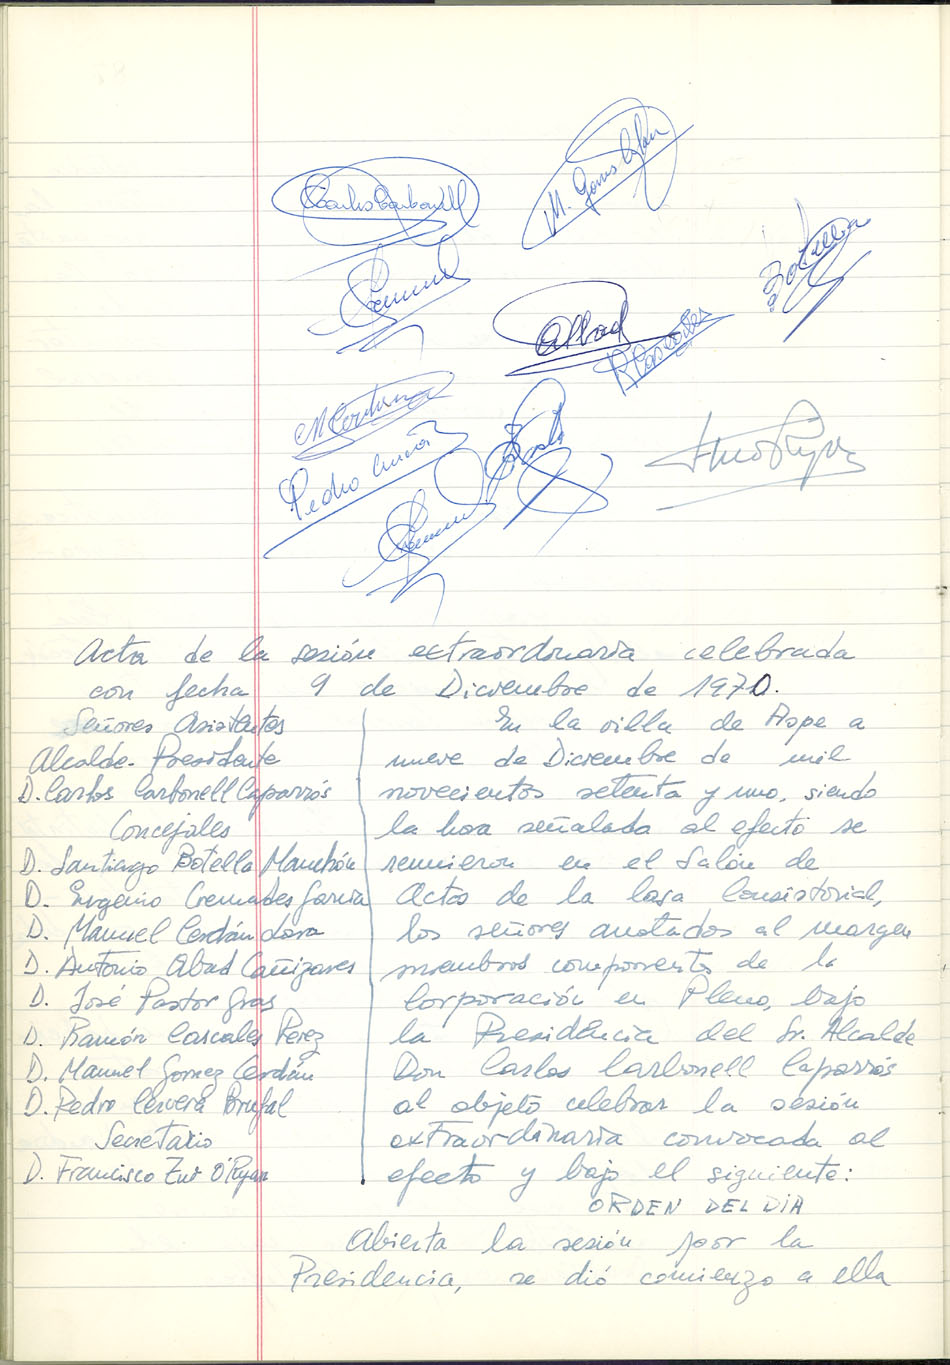 Carlos Carbonell
M. Gomez Cerdán
Botella
A Abad
R Cascales
M Cerdán
Pedro
Acta de la sesión extraordinaria celebrada
con fecha 9 de Diciembre de 1970.
Señores Asistentes
Alcalde-Presidente
D. Carlos Carbonell Caparrós
Concejales
D. Santiago Botella Manchón
D. Eugenio Cremades Garcia
D. Manuel Cerdán
D. Antonio Abad Cañizares
D. José Pastor Gras
D. Ramón Cascales Perez
D. Manuel Gomez Cerdán
D. Pedro Cerverá Brufal
Secretario
D. Francisco O'Ryan
En la villa de Aspe a
nueve de Diciembre de mil
novecientos setenta y uno, siendo
la hora señalada al efecto se
reunieron en el Salón de
Actos de la Casa Consistorial,
los señores anotados al margen
miembros componentes de la
Corporación en Pleno, bajo
la Presidencia del Sr. Alcalde
Don Carlos Carbonell Caparrós
al objeto celebrar la sesión
extraordinaria convocada al
efecto y bajo el siguiente:
ORDEN DEL DIA
Abierta la sesión por la
Presidencia, se dió comienzo a ella